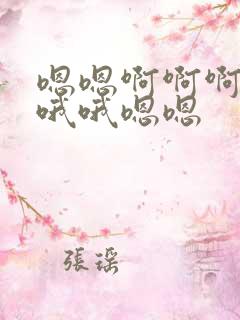 嗯嗯啊啊啊
哦哦嗯嗯
張瑶